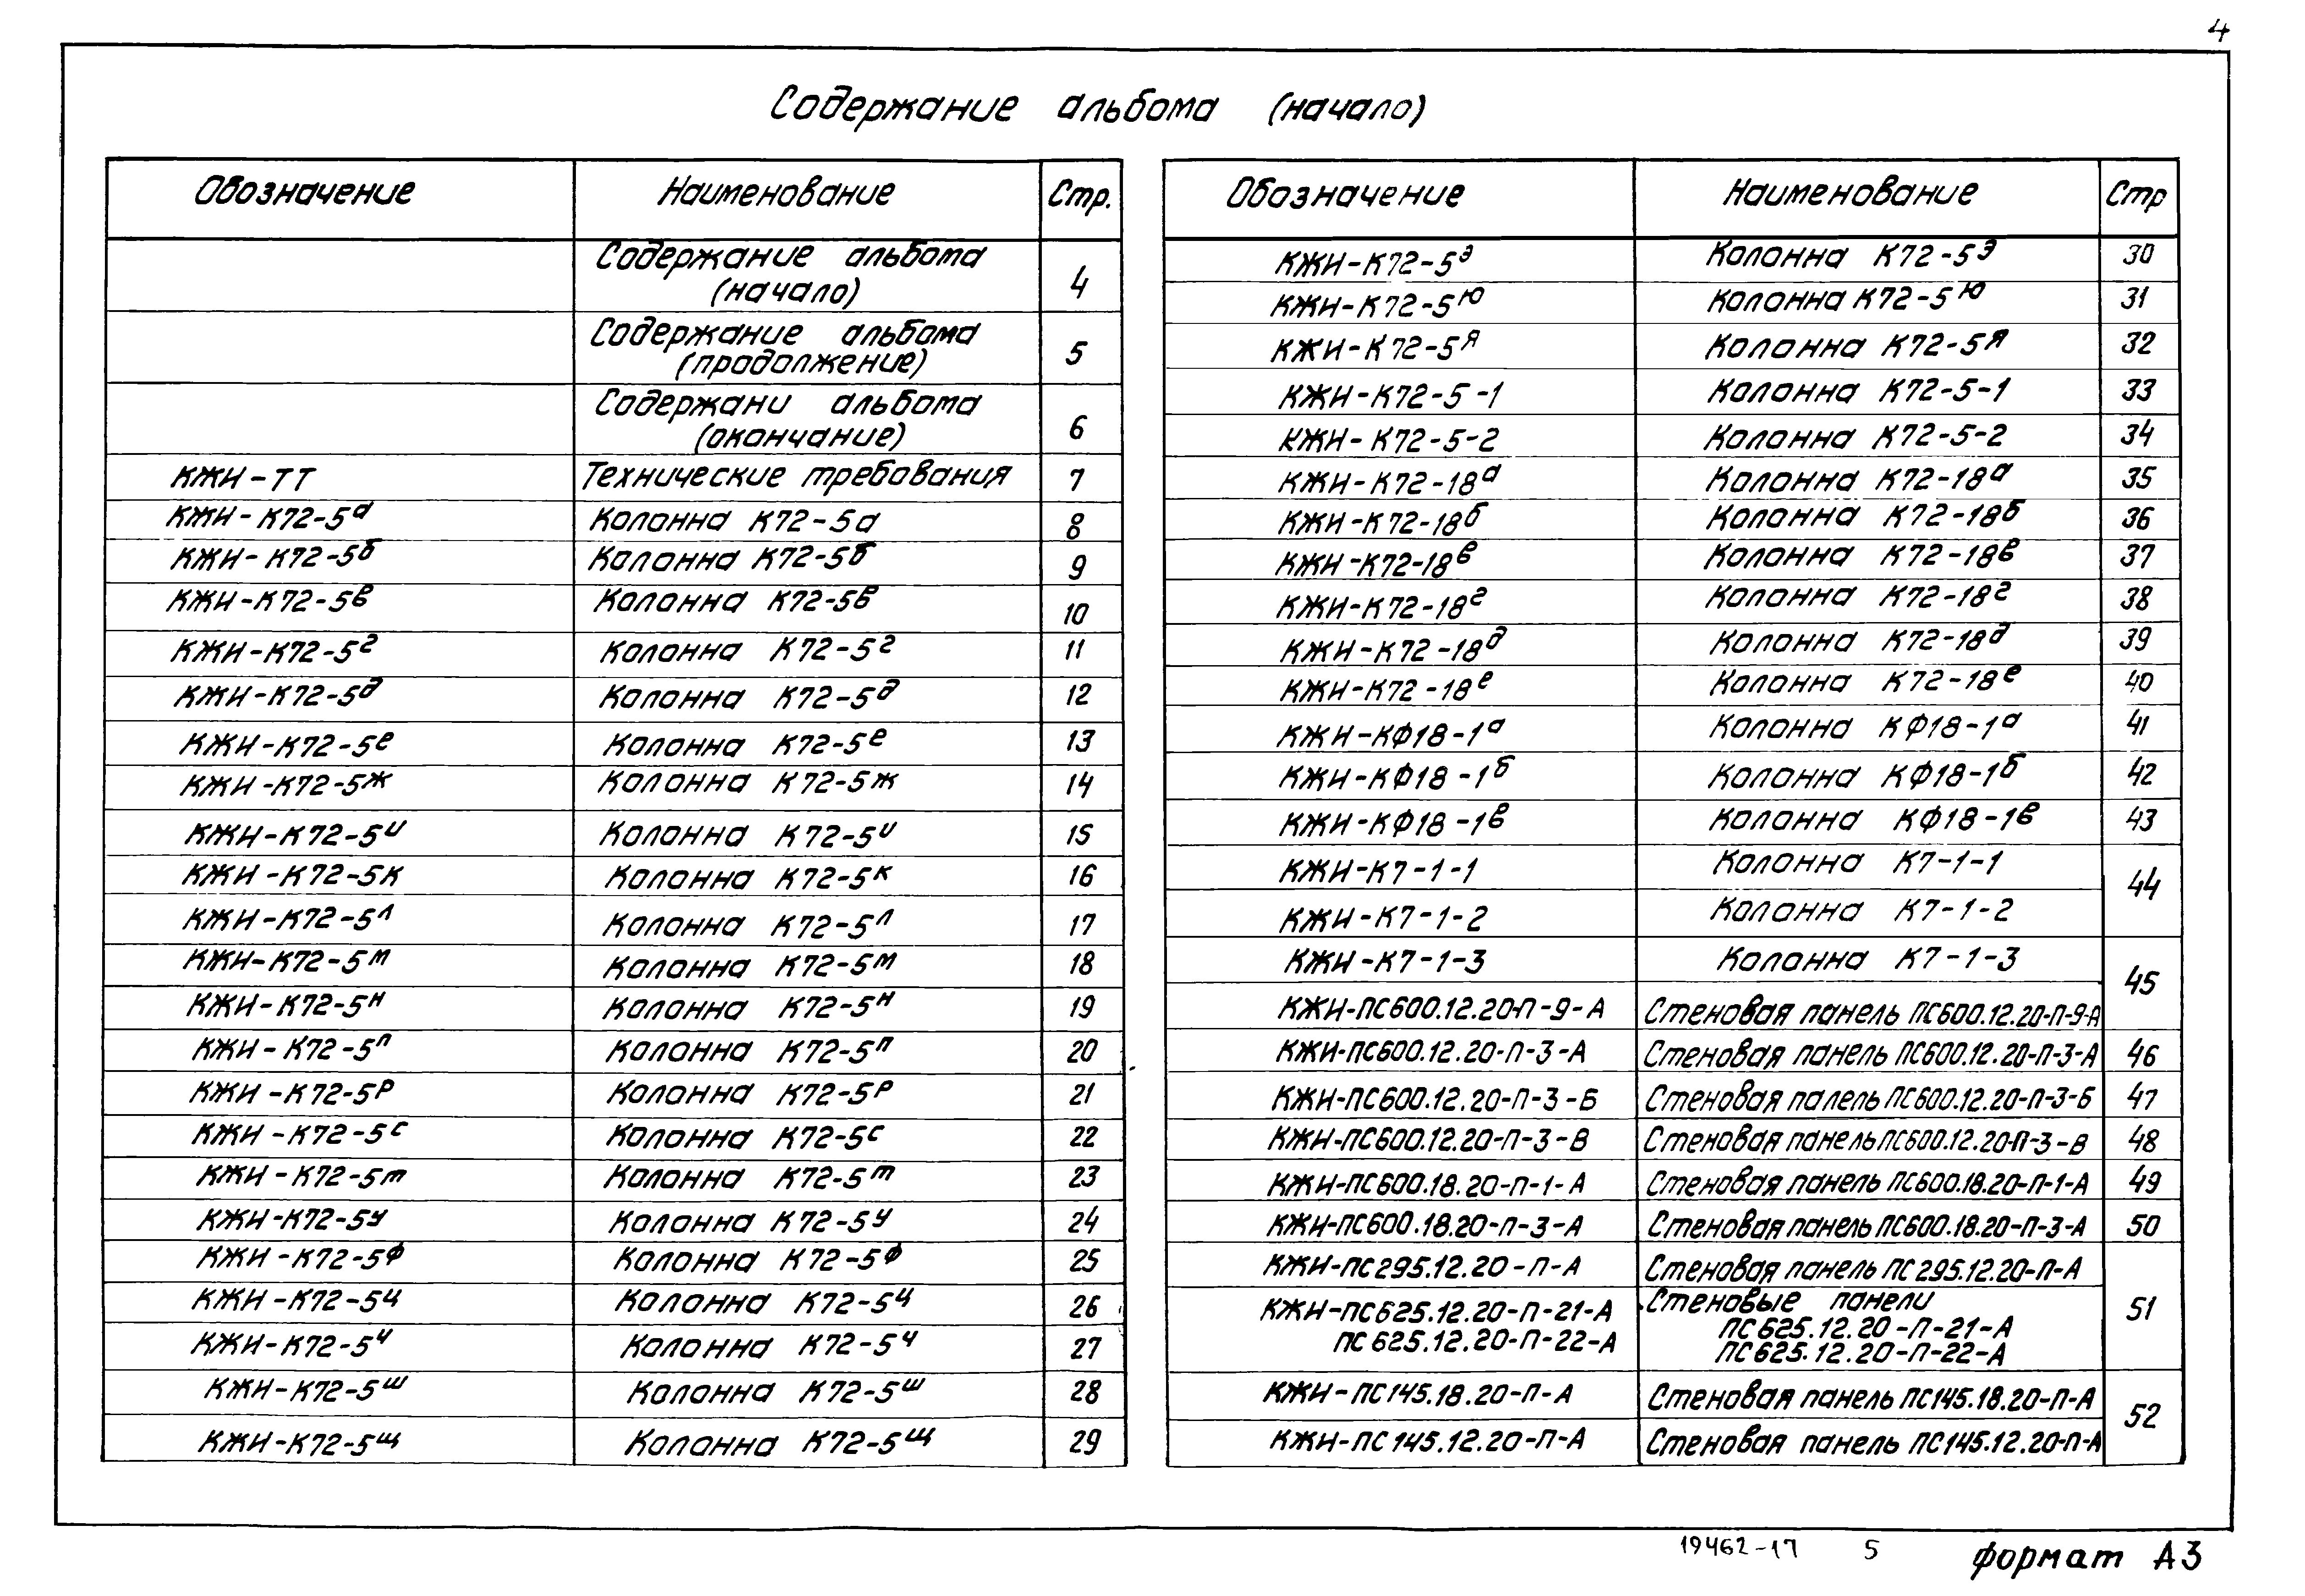 4
Содержание альбома (начало)
Обозначение Наименование Стр.
Содержание альбома
(начало) 4
Содержание альбома
(продолжение) 5
Содержани альбома
(окончание) 6
КЖИ-ТТ Технические требования 7
КЖИ-К72-5а Колонна К72-5а 8
КЖИ-К72-5б Колонна К72-5б 9
КЖИ-К72-5в Колонна К72-5в 10
КЖИ-К72-5г Колонна К72-5г 11
КЖИ-К72-5д Колонна К72-5д 12
КЖИ-К72-5е Колонна К72-5е 13
КЖИ-К72-5ж Колонна К72-5ж 14
КЖИ-К72-5и Колонна К72-5и 15
КЖИ-К72-5к Колонна К72-5к 16
КЖИ-К72-5л Колонна К72-5л 17
КЖИ-К72-5м Колонна К72-5м 18
КЖИ-К72-5н Колонна К72-5н 19
КЖИ-К72-5п Колонна К72-5п 20
КЖИ-К72-5р Колонна К72-5р 21
КЖИ-К72-5с Колонна К72-5с 22
КЖИ-К72-5т Колонна К72-5т 23
КЖИ-К72-5у Колонна К72-5у 24
КЖИ-К72-5ф Колонна К72-5ф 25
КЖИ-К72-5ц Колонна К72-5ц 26
КЖИ-К72-5ч Колонна К72-5ч 27
КЖИ-К72-5ш Колонна К72-5ш 28
КЖИ-К72-5щ Колонна К72-5щ 29
Обозначение Наименование Стр
КЖИ-К72-5э Колонна К72-5э 30
КЖИ-К72-5ю Колонна К72-5ю 31
КЖИ-К72-5я Колонна К72-5я 32
КЖИ-К72-5-1 Колонна К72-5-1 33
КЖИ-К72-5-2 Колонна К72-5-2 34
КЖИ-К72-18а Колонна К72-18а 35
КЖИ-К72-18б Колонна К72-18б 36
КЖИ-К72-18в Колонна К72-18в 37
КЖИ-К72-18г Колонна К72-18г 38
КЖИ-К72-18д Колонна К72-18д 39
КЖИ-К72-18е Колонна К72-18е 40
КЖИ-КФ18-1а Колонна КФ18-1а 41
КЖИ-КФ18-1б Колонна КФ18-1б 42
КЖИ-КФ18-1в Колонна КФ18-1в 43
КЖИ-К7-1-1 Колонна К7-1-1 44
КЖИ-К7-1-2 Колонна К7-1-2
КЖИ-К7-1-3 Колонна К7-1-3 45
КЖИ-ПС600.12.20-П-9-А Стеновая панель ПС600.12.20-П-9-А
КЖИ-ПС600.12.20-П-3-А Стеновая панель ПС600.12.20-П-3-А 46
КЖИ-ПС600.12.20-П-3-Б Стеновая палель ПС600.12.20-П-3-Б 47
КЖИ-ПС600.12.20-П-3-В Стеновая панель ПС600.12.20-П-3-В 48
КЖИ-ПС600.18.20-П-1-А Стеновая панель ПС600.18.20-П-1-А 49
КЖИ-ПС600.18.20-П-3-А Стеновая панель ПС600.18.20-П-3-А 50
КЖИ-ПС295.12.20-П-А Стеновая панель ПС295.12.20-П-А
КЖИ-ПС625.12.20-П-21-А Стеновые панели 51
ПС625.12.20-П-22-А ПС625.12.20-П-21-А
ПС625.12.20-П-22-А
КЖИ-ПС145.18.20-П-А Стеновая панель ПС145.18.20-П-А 52
КЖИ-ПС145.12.20-П-А Стеновая панель ПС145.12.20-П-А
19462-17 5 формат А3